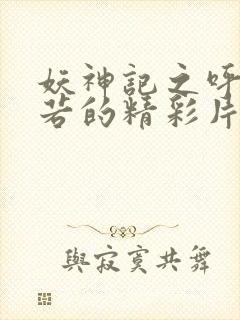 妖神記之呼
若的精彩片
與寂寞共舞